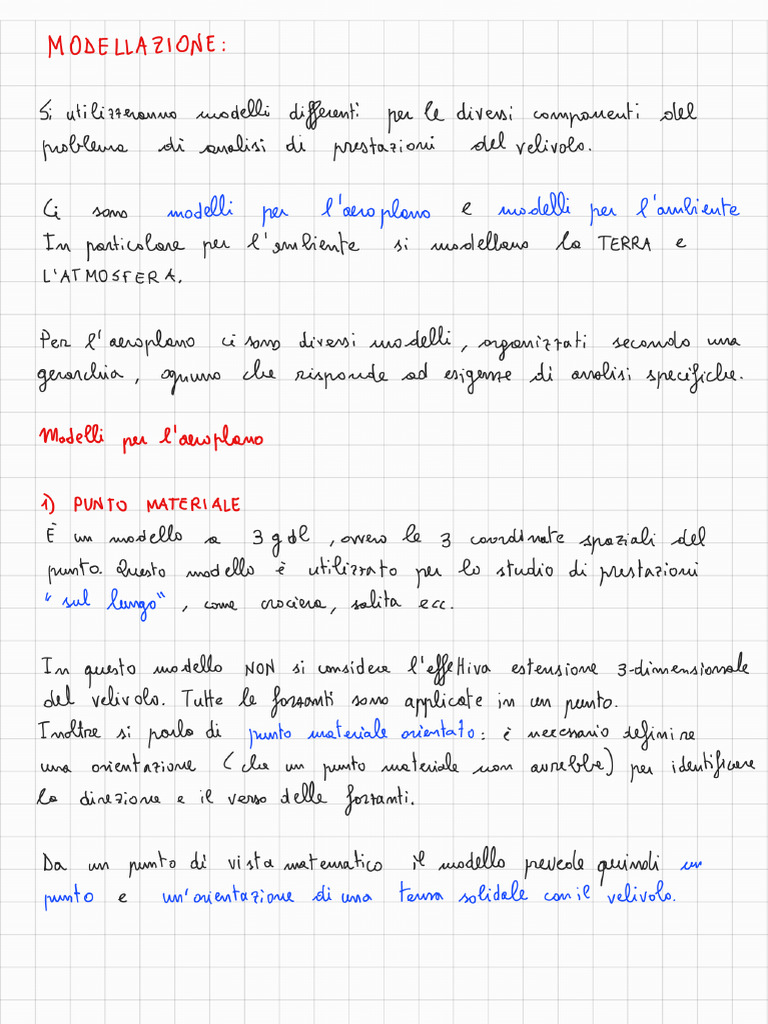 MODELLAZIONE:
Si utilizzeranno modelli differenti per le diversi componenti del
problema di analisi di prestazioni del velivolo.
Ci sono modelli per l'aeroplano e modelli per l'ambiente
In particolare per l'ambiente si modellano la TERRA e
L'ATMOSFERA.
Per l'aeroplano ci sono diversi modelli, organizzati secondo una
gerarchia, ognuno che risponde ad esigenze di analisi specifiche.
Modelli per l'aeroplano
1) PUNTO MATERIALE
È un modello a 3 gdl, ovvero le 3 coordinate spaziali del
punto. Questo modello è utilizzato per lo studio di prestazioni
"sul lungo", come crociera, salita ecc.
In questo modello NON si considera l'effettiva estensione 3-dimensionale
del velivolo. Tutte le forzanti sono applicate in un punto.
Inoltre si parla di punto materiale orientato: è necessario definire
una orientazione (che un punto materiale non avrebbe) per identificare
la direzione e il verso delle forzanti.
Da un punto di vista matematico il modello prevede quindi un
punto e un'orientazione di una terna solidale con il velivolo.